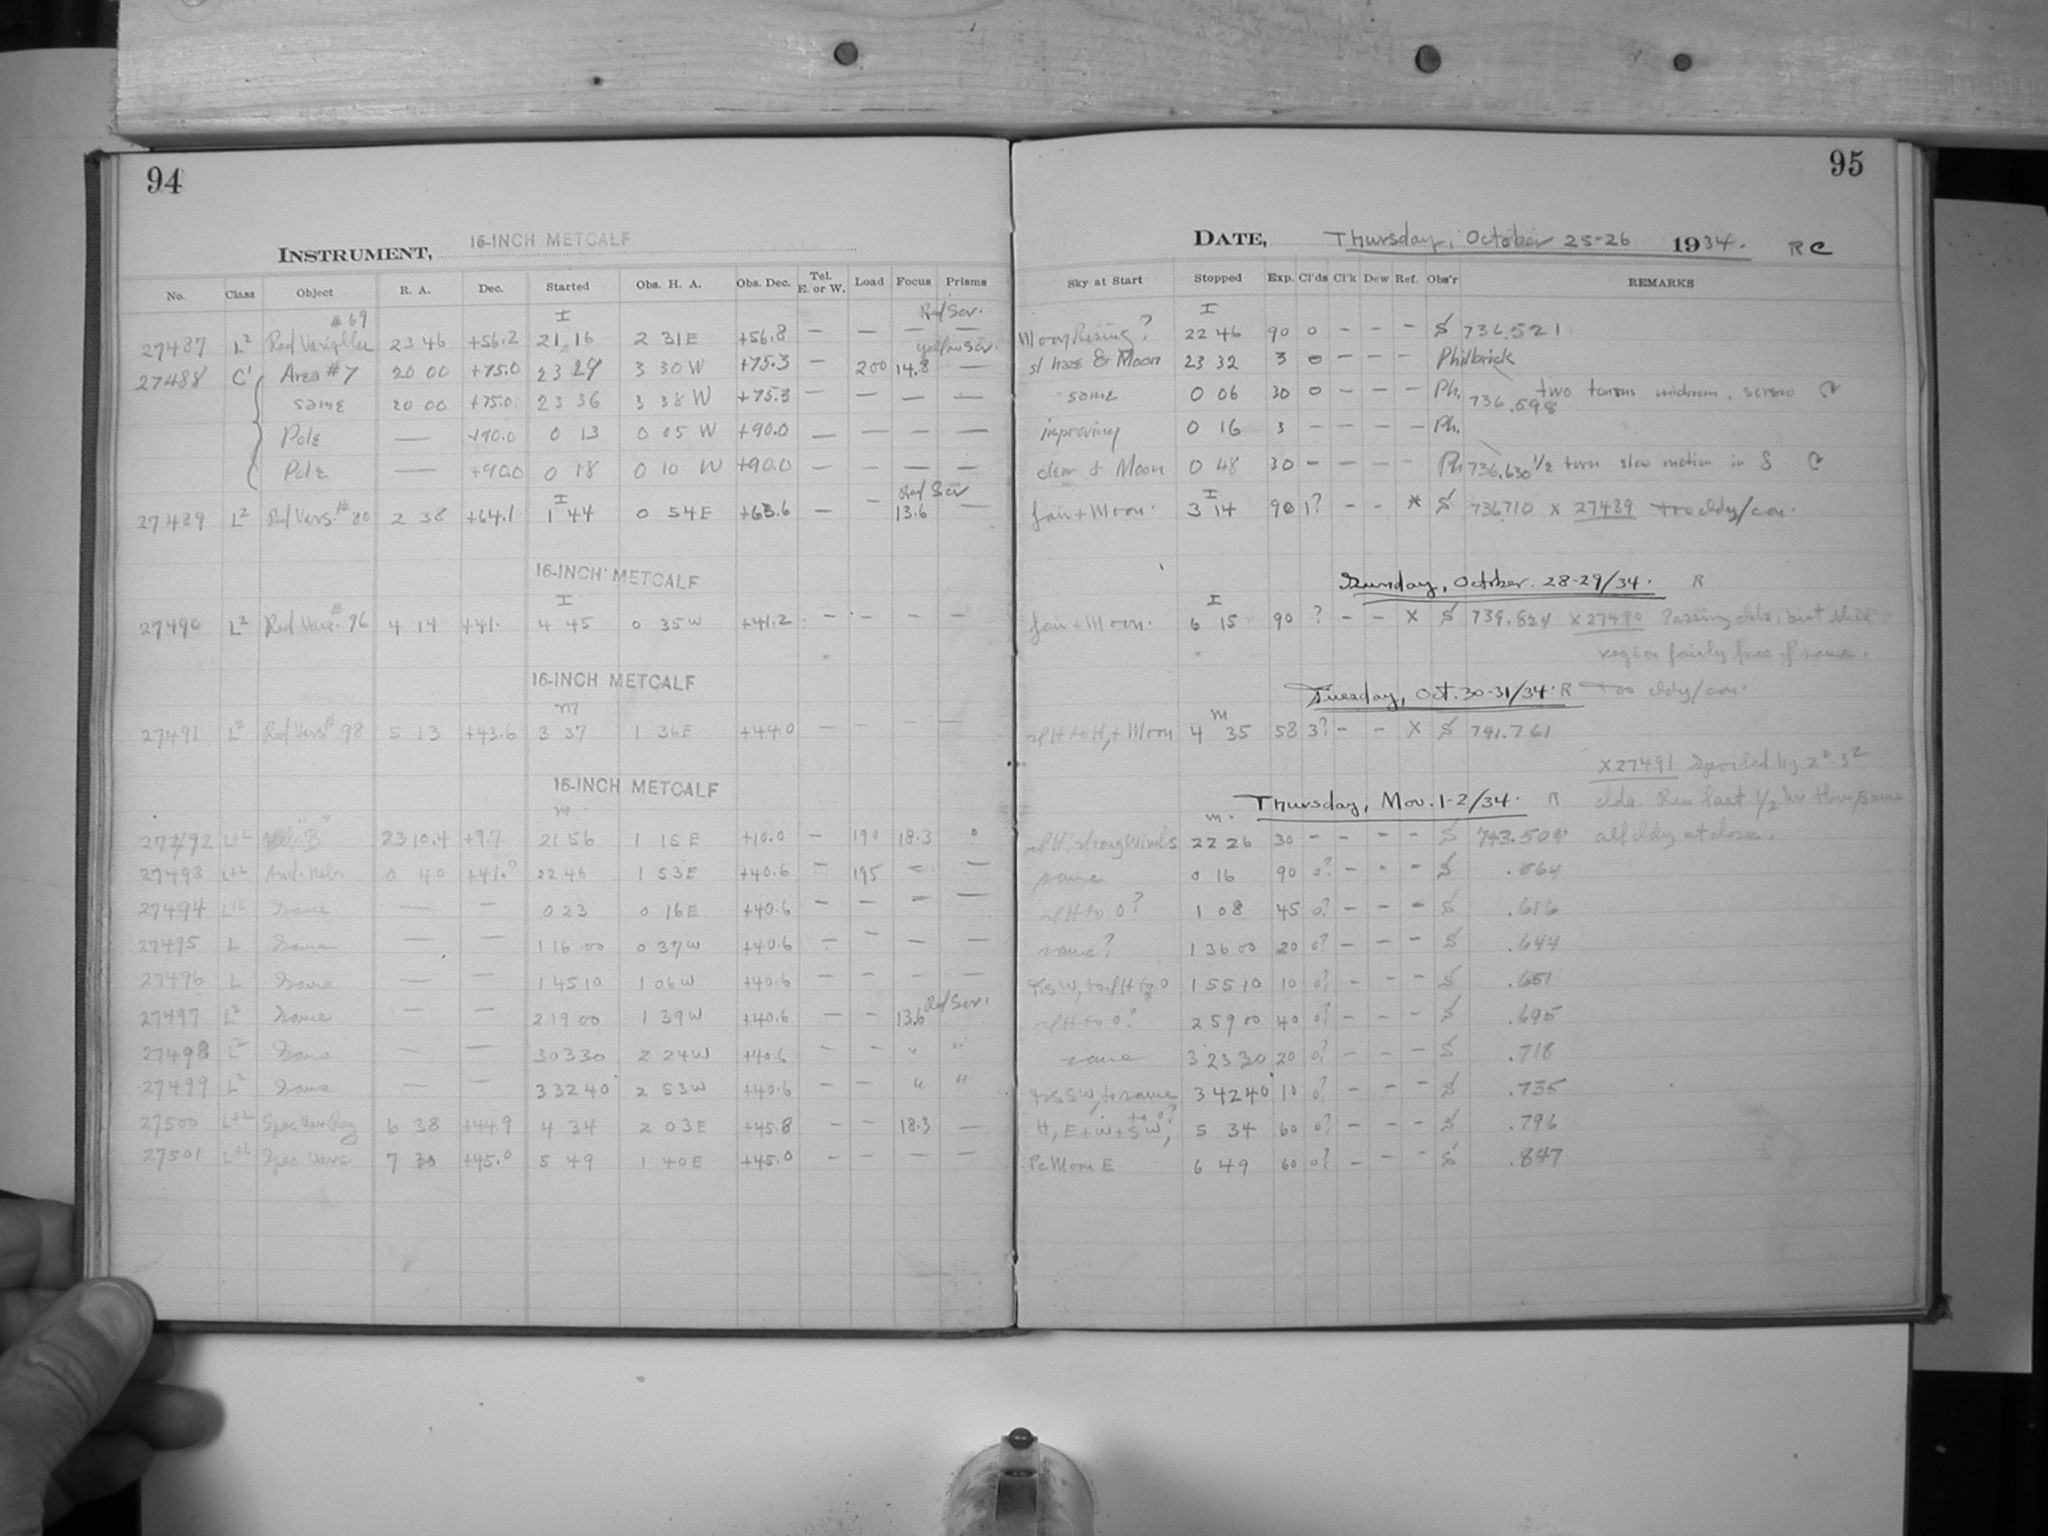 94
INSTRUMENT, 16-INCH METCALF
No. Class Object R. A. Dec. Started Obs. H. A. Obs. Dec. Tel. E. or W. Load Focus Prisms
#69 I Red Scr.
27487 L² Red Variables 23 46 +56.2 21 16 2 31 E +56.8 — — — —
yellow scr.
27488 C' Area #7 20 00 +75.0 23 29 3 30 W +75.3 — 200 14.8 —
same 20 00 +75.0 23 36 3 38 W +75.3 — — — —
Pole — +90.0 0 13 0 05 W +90.0 — — — —
Pole — +90.0 0 18 0 10 W +90.0 — — — —
I Red Scr
27489 L² Red Vars. #80 2 38 +64.1 1 44 0 54 E +63.6 — — 13.6 —
16-INCH METCALF
I
27490 L² Red Vars. #96 4 14 +41. 4 45 0 35 W +41.2 — — — —
16-INCH METCALF
m
27491 L² Red Vars #98 5 13 +43.6 3 37 1 36 E +44.0 — — — —
16-INCH METCALF
m
27492 L+L "B" 23 10.4 +9.7 21 56 1 15 E +10.0 — 190 18.3 0
27493 L+L And. Neb. 0 40 +41.0 22 46 1 53 E +40.6 — 195 — —
27494 L+L Same — — 0 23 0 16 E +40.6 — — — —
27495 L Same — — 1 16 00 0 37 W +40.6 — — — —
27496 L Same — — 1 45 10 1 06 W +40.6 — — — —
Red Scr.
27497 L² Same — — 2 19 00 1 39 W +40.6 — — 13.6
27498 L² Same — — 3 03 30 2 24 W +40.6 — — " "
27499 L² Same — — 3 32 40 2 53 W +40.6 — — " "
27500 L+L Spec Vars 6 38 +44.9 4 34 2 03 E +45.8 — — 18.3 —
27501 L+L Spec Vars. 7 30 +45.0 5 49 1 40 E +45.0 — — — —
95
DATE, Thursday, October 25-26 1934. RC
Sky at Start Stopped Exp. Cl'ds Cl'k Dew Ref. Obs'r REMARKS
I
Moon Rising? 22 46 90 0 — — — S 736.521
sl haze & Moon 23 32 3 0 — — — Philbrick
same 0 06 30 0 — — — Ph. 736.598 two turns screw
improving 0 16 3 — — — — Ph.
clear & Moon 0 48 30 — — — — Ph 736.630 1/2 turn slow motion in δ
I
fair + Moon. 3 14 90 1? — — * S 736710 x 27489 too cldy/con.
Sunday, October. 28-29/34. R
I
fair + Moon. 6 15 90 ? — — X S 739.824 x 27490 Passing clds, but this
region fairly free of same.
Tuesday, Oct. 30-31/34. R too cldy/con.
m
sl H to H, + Moon 4 35 58 3? — — X S 741.761
X 27491 Spoiled by 2²-3²
Thursday, Nov. 1-2/34. R clds. last 1/2 hr
m.
sl H, strong winds 22 26 30 — — — — S 743.504 all cldy at close.
same 0 16 90 0? — — — S .564
sl H to 0? 1 08 45 0? — — — S .616
same? 1 36 00 20 0? — — — S .644
to sl H to 0 1 55 10 10 0? — — — S .651
sl H to 0? 2 59 00 40 0? — — — S .695
same 3 23 30 20 0? — — — S .718
SW, to same 3 42 40 10 0? — — — S .735
to 0?
H, E + W + SW, 5 34 60 0? — — — S .796
Moon E 6 49 60 0? — — — S .847